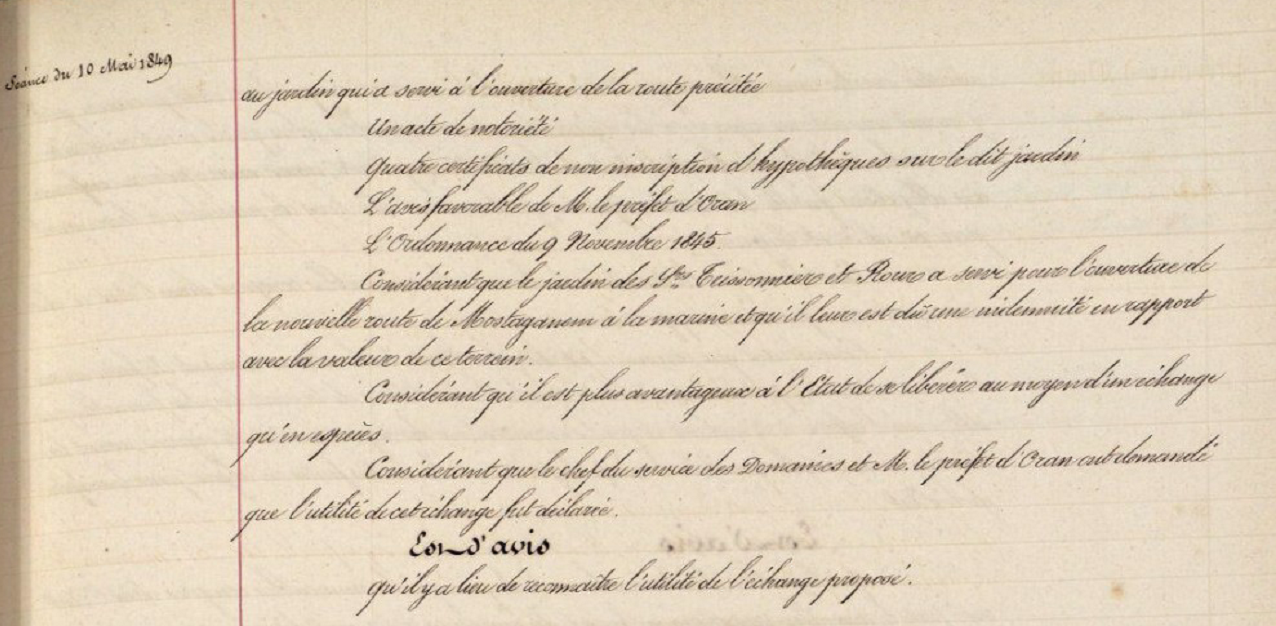 Séance du 10 Mai 1849
au jardin qui a servi à l'ouverture de la route précitée
Un acte de notoriété
Quatre certificats de non inscription d'hypothèques sur le dit jardin
L'avis favorable de M. le préfet d'Oran
L'Ordonnance du 9 Novembre 1845.
Considérant que le jardin des Srs Tissonnière et Roux a servi pour l'ouverture de
la nouvelle route de Mostaganem à la marine et qu'il leur est dû une indemnité en rapport
avec la valeur de ce terrein.
Considérant qu'il est plus avantageux à l'Etat de se libérer au moyen d'un échange
qu'en espèces.
Considérant que le chef du service des Domaines et M. le préfet d'Oran ont demandé
que l'utilité de cet échange fut déclarée.
Est d'avis
qu'il y a lieu de reconnaître l'utilité de l'échange proposé.